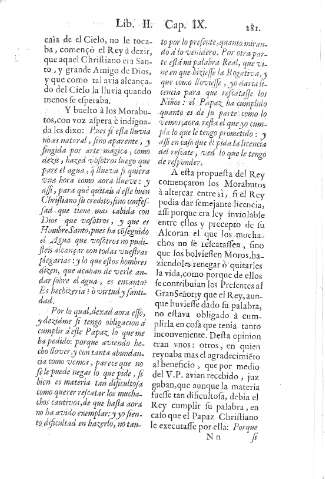 Lib. II. Cap. IX. 281.
caìa de el Cielo, no le toca-
ba, començò el Rey à dezir,
que aquel Christiano era San-
to, y grande Amigo de Dios,
y que como tal avia alcança-
do del Cielo la lluvia quando
menos se esperaba.
Y buelto à los Morabu-
tos, con voz aspera è indigna-
da les dixo: Pues si esta lluvia
no es natural, sino aparente, y
fingida por arte magica, como
dezis, hazed vosotros luego que
pare el agua, ò llueva si quiera
una hora como aora llueve: y
assi, para què quitais à esse buen
Christiano su credito, sino confes-
sad que tiene mas cabida con
Dios que vosotros, y que es
Hombre Santo, pues ha conseguido
el Agua que vosotros no pudi-
steis alcançar con todas vuestras
plegarias: y lo que essos hombres
dizen, que acaban de verle an-
dar sobre el agua, es encanto?
Es hechizeria? ò virtud y santi-
dad.
Por lo qual, dexad aora esso,
y dezidme si tengo obligacion à
cumplir à esse Papaz lo que me
ha pedido: porque aviendo he-
cho llover, y con tanta abondan-
cia como vemos, parece que no
se le puede negar lo que pide, si
bien es materia tan dificultosa
como querer rescatar los mucha-
chos cautivos, de que hasta aora
no ha avido exemplar: y yo sien-
to dificultad en hazerlo, no tan-
to por lo presente, quanto miran-
do à lo venidero. Por otra par-
te està mi palabra Real, que vi-
no en que hiziesse la Rogativa, y
que como lloviesse, yo daria li-
cencia para que rescatasse los
Niños: el Papaz ha cumplido
quanto es de su parte como lo
vemos; aora, resta el que yo cum-
pla lo que le tengo prometido: y
assi en caso que èl pida la licencia
del rescate, ved lo que le tengo
de responder.
A esta propuesta del Rey
començaron los Morabutos
à altercar entre sì, si el Rey
podia dar semejante licencia,
assi porque era ley inviolable
entre ellos y precepto de su
Alcoran el que los mucha-
chos no se rescatassen, sino
que los bolviessen Moros, ha-
ziendoles renegar ò quitarles
la vida, como porque de ellos
se contribuìan los Presentes al
Gran Señor; y que el Rey, aun-
que huviesse dado su palabra,
no estava obligado à cum-
plirla en cosa que tenia tanto
inconveniente. Desta opinion
eran unos: otros, en quien
reynaba mas el agradecimiẽto
al beneficio, que por medio
del V.P. avian recebido, juz
gaban, que aunque la materia
fuesse tan dificultosa, debia el
Rey cumplir su palabra, en
caso que el Papaz Christiano
le executasse por ella: Porque
N n si